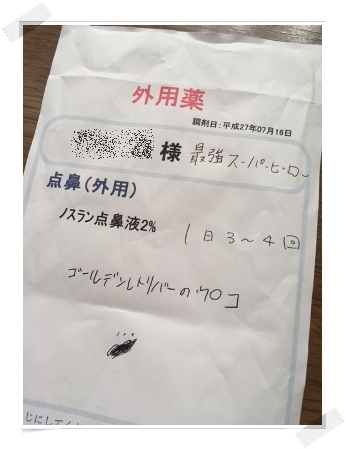 外用薬
調剤日:平成27年07月16日
様 最強スーパーヒーロー
点鼻(外用)
ノスラン点鼻液2% 1日3~4回
ゴールデンレトリバーのウロコ
じにしてくだ